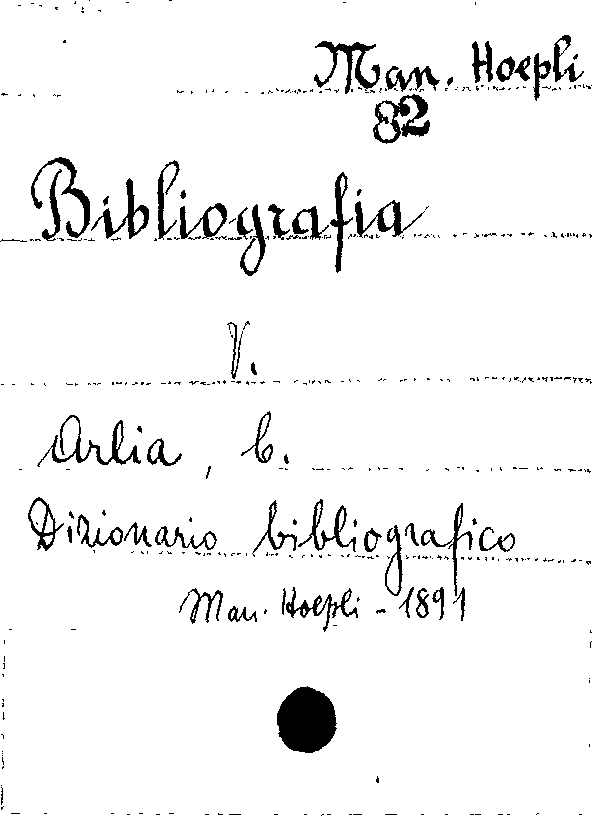 Man. Hoepli
82
Bibliografia
V.
Arlia, C.
Dizionario bibliografico
Man. Hoepli - 1891